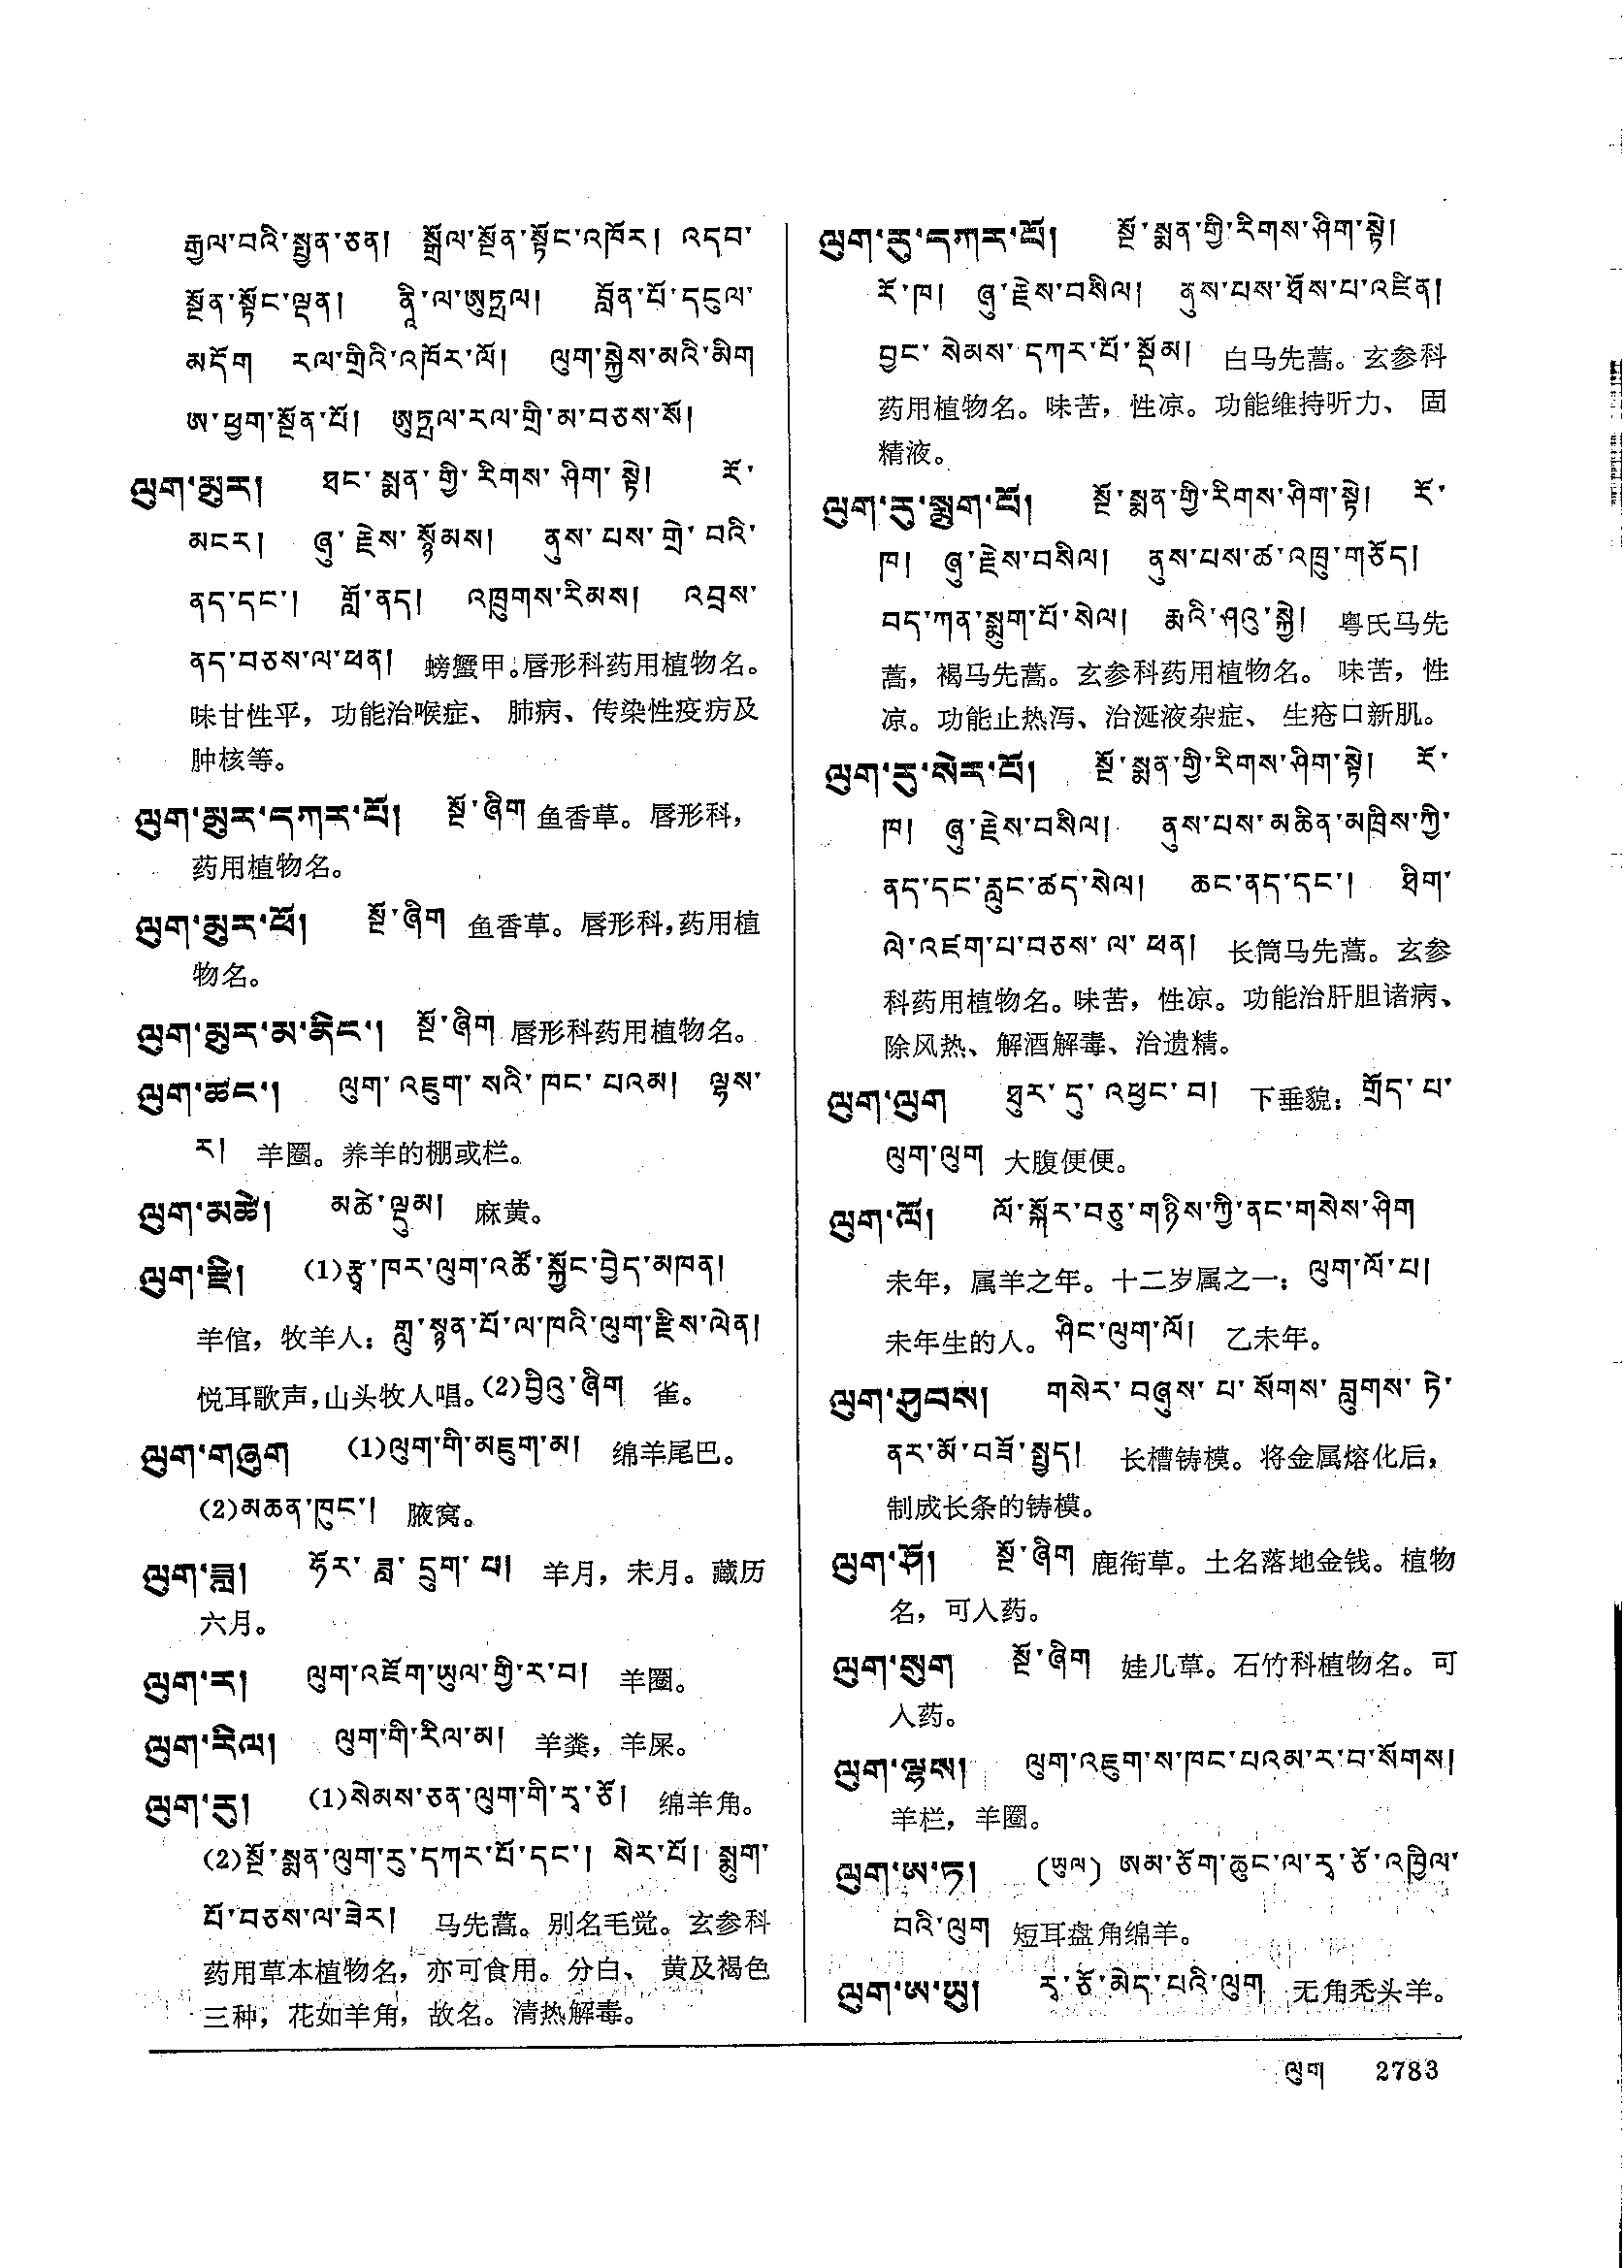 རྒྱལ་བའི་སྤྱན་ཅན། སྒྲོལ་སྔོན་སྟོང་འཁོར། འདབ་
སྔོན་སྟོང་ལྡན། ནཱི་ལ་ཨུཏྤལ། བློན་པོ་དངུལ་
མདོག རལ་གྲིའི་འཁོར་ལོ། ལུག་སྐྱེས་མའི་མིག
ཨ་ཕྱག་སྔོན་པོ། ཨུཏྤལ་རལ་གྲི་མ་བཅས་སོ།
ལུག་མུར། ཐང་སྨན་གྱི་རིགས་ཤིག་སྟེ། རོ་
མངར། ཞུ་རྗེས་སྙོམས། ནུས་པས་གྲེ་བའི་
ནད་དང་། གློ་ནད། འཁྲུགས་རིམས། འབྲས་
ནད་བཅས་ལ་ཕན། 螃蟹甲。唇形科药用植物名。
味甘性平，功能治喉症、肺病、传染性疫疠及
肿核等。
ལུག་མུར་དཀར་པོ། སྔོ་ཞིག 鱼香草。唇形科，
药用植物名。
ལུག་མུར་ཕོ། སྔོ་ཞིག 鱼香草。唇形科，药用植
物名。
ལུག་མུར་མ་ནིང་། སྔོ་ཞིག 唇形科药用植物名。
ལུག་ཚང་། ལུག་འཇུག་སའི་ཁང་པའམ། ལྷས་
ར། 羊圈。养羊的棚或栏。
ལུག་མཚེ། མཚེ་ལྡུམ། 麻黄。
ལུག་རྫི། (1)རྩྭ་ཁར་ལུག་འཚོ་སྐྱོང་བྱེད་མཁན།
羊倌，牧羊人：གླུ་སྙན་པོ་ལ་ཁའི་ལུག་རྫིས་ལེན།
悦耳歌声，山头牧人唱。(2)བྱིའུ་ཞིག 雀。
ལུག་གཞུག (1)ལུག་གི་མཇུག་མ། 绵羊尾巴。
(2)མཆན་ཁུང་། 腋窝。
ལུག་ཟླ། ཧོར་ཟླ་དྲུག་པ། 羊月，未月。藏历
六月。
ལུག་ར། ལུག་འཇོག་ཡུལ་གྱི་ར་བ། 羊圈。
ལུག་རིལ། ལུག་གི་རིལ་མ། 羊粪，羊屎。
ལུག་རུ། (1)སེམས་ཅན་ལུག་གི་རྭ་ཅོ། 绵羊角。
(2)སྔོ་སྨན་ལུག་རུ་དཀར་པོ་དང་། སེར་པོ། སྨུག་
པོ་བཅས་ལ་ཟེར། 马先蒿。别名毛觉。玄参科
药用草本植物名，亦可食用。分白、黄及褐色
三种，花如羊角，故名。清热解毒。
ལུག་རུ་དཀར་པོ། སྔོ་སྨན་གྱི་རིགས་ཤིག་སྟེ།
རོ་ཁ། ཞུ་རྗེས་བསིལ། ནུས་པས་ཐོས་པ་འཛིན།
བྱང་སེམས་དཀར་པོ་སྡོམ། 白马先蒿。玄参科
药用植物名。味苦，性凉。功能维持听力、固
精液。
ལུག་རུ་སྨུག་པོ། སྔོ་སྨན་གྱི་རིགས་ཤིག་སྟེ། རོ་
ཁ། ཞུ་རྗེས་བསིལ། ནུས་པས་ཚ་འཁྲུ་གཅོད།
བད་ཀན་སྨུག་པོ་སེལ། རྨའི་ཤའུ་སྐྱེ། 粤氏马先
蒿，褐马先蒿。玄参科药用植物名。味苦，性
凉。功能止热泻、治涎液杂症、生疮口新肌。
ལུག་རུ་སེར་པོ། སྔོ་སྨན་གྱི་རིགས་ཤིག་སྟེ། རོ་
ཁ། ཞུ་རྗེས་བསིལ། ནུས་པས་མཆིན་མཁྲིས་ཀྱི་
ནད་དང་རླུང་ཚད་སེལ། ཆང་ནད་དང་། ཐིག་
ལེ་འཛག་པ་བཅས་ལ་ཕན། 长筒马先蒿。玄参
科药用植物名。味苦，性凉。功能治肝胆诸病、
除风热、解酒解毒、治遗精。
ལུག་ལུག ཐུར་དུ་འཕྱང་བ། 下垂貌：གྲོད་པ་
ལུག་ལུག 大腹便便。
ལུག་ལོ། ལོ་སྐོར་བཅུ་གཉིས་ཀྱི་ནང་གསེས་ཤིག
未年，属羊之年。十二岁属之一：ལུག་ལོ་པ།
未年生的人。ཤིང་ལུག་ལོ། 乙未年。
ལུག་ཤུབས། གསེར་བཞུས་པ་སོགས་བླུགས་ཏེ་
ནར་མོ་བཟོ་སྤྱད། 长槽铸模。将金属熔化后，
制成长条的铸模。
ལུག་ཤོ། སྔོ་ཞིག 鹿衔草。土名落地金钱。植物
名，可入药。
ལུག་སུག སྔོ་ཞིག 娃儿草。石竹科植物名。可
入药。
ལུག་ལྷས། ལུག་འཇུག་ས་ཁང་པའམ་ར་བ་སོགས།
羊栏，羊圈。
ལུག་ཨ་ཏ། (ཡུལ) ཨམ་ཅོག་ཆུང་ལ་རྭ་ཅོ་འཁྱིལ་
བའི་ལུག 短耳盘角绵羊。
ལུག་ཨ་ཡུ། རྭ་ཅོ་མེད་པའི་ལུག 无角秃头羊。
ལུག 2783